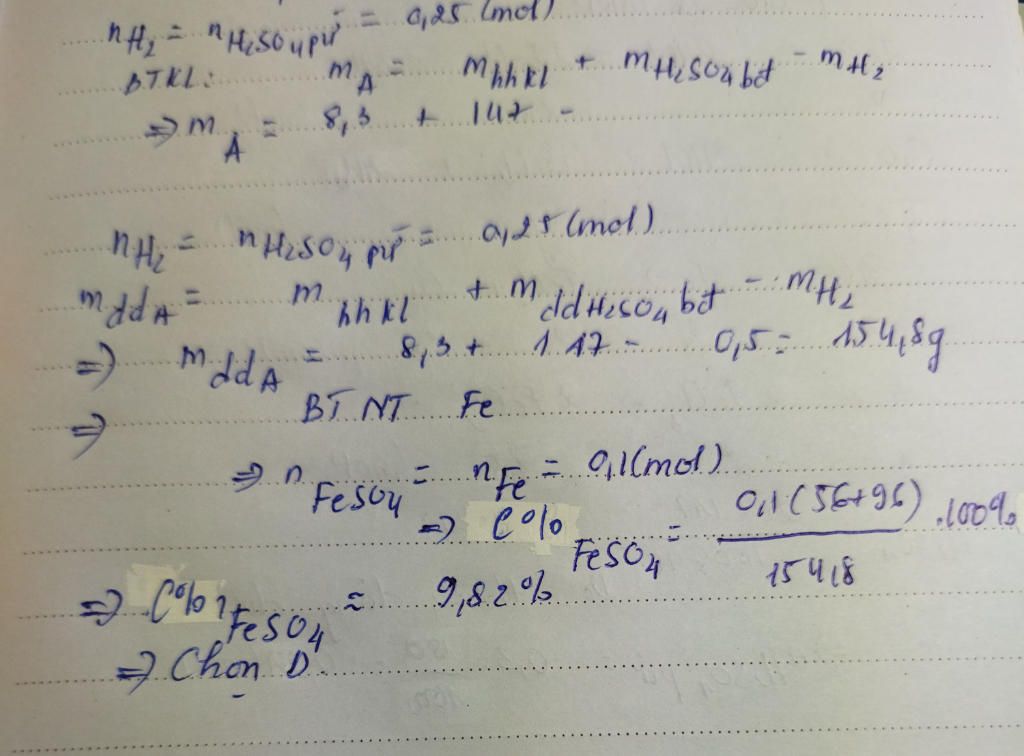 nH₂ = nH₂SO₄ pứ = 0,25 (mol)
BTKL: mA = mhhkl + mH₂SO₄bđ - mH₂
=> mA = 8,3 + 147 -
nH₂ = nH₂SO₄ pứ = 0,25 (mol)
mddA = mhhkl + mddH₂SO₄ bđ - mH₂
=> mddA = 8,3 + 147 - 0,5 = 154,8g
=> BT NT Fe
=> nFeSO₄ = nFe = 0,1 (mol)
=> C% FeSO₄ = 0,1(56+96) / 154,8 .100%
=> C% FeSO₄ = 9,82%
=> Chọn D.